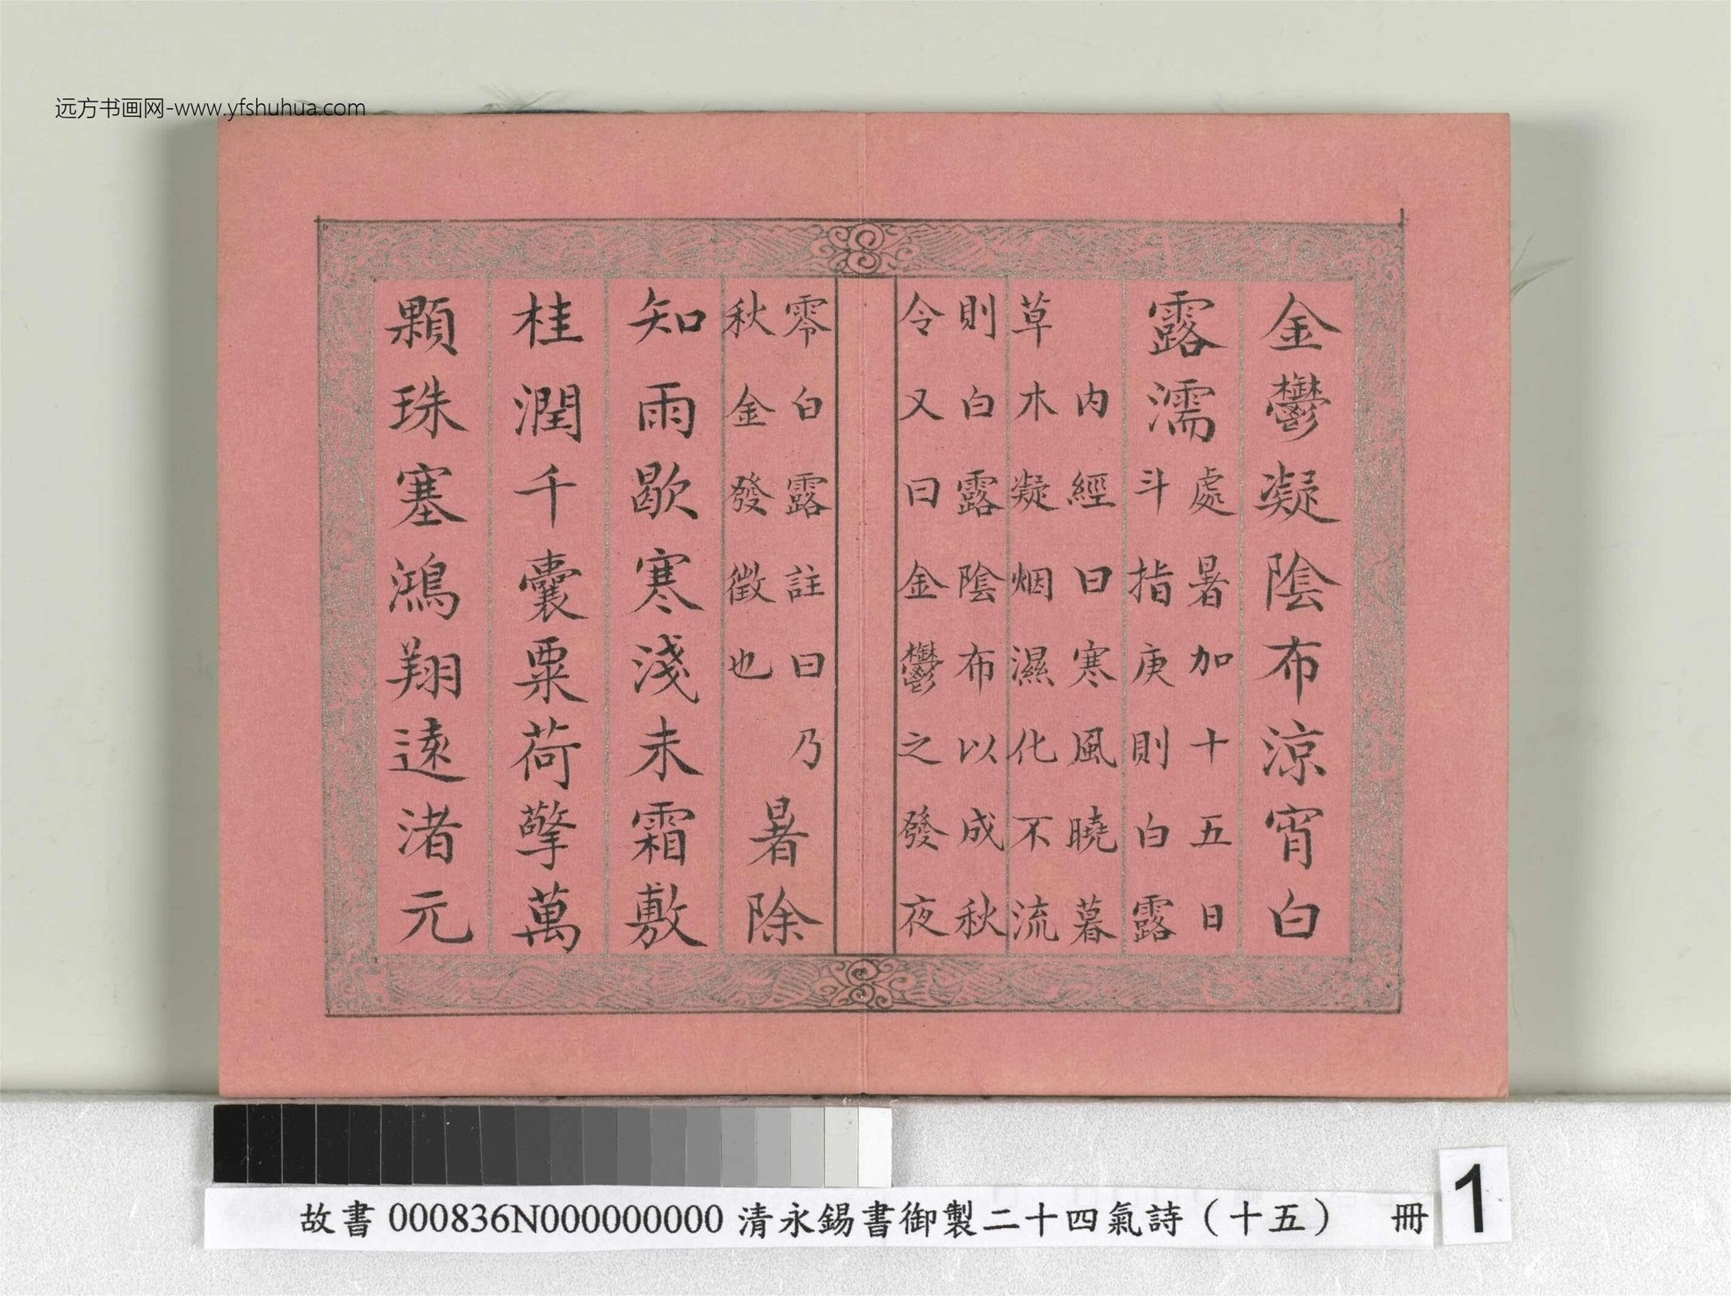 远方书画网-www.yfshuhua.com
金鬱凝陰布涼宵白
露濡
處暑加十五日
斗指庚則白露
內經曰寒風曉暮
草木凝烟濕化不流
則白露陰布以成秋
令又曰金鬱之發夜
零白露註曰乃
秋金發徵也
暑除
知雨歇寒淺未霜敷
桂潤千囊粟荷擎萬
顆珠塞鴻翔遠渚元
故書000836N000000000 清永錫書御製二十四氣詩（十五） 冊
1